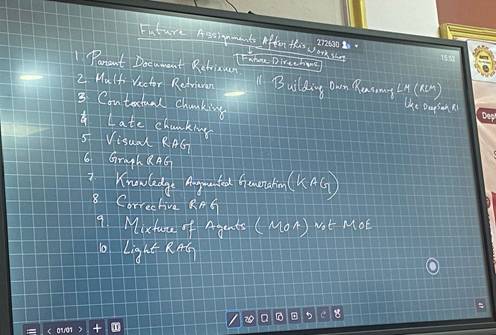 Future Assignments After this Workshop
272630
Future Directions
15:52
1. Parent Document Retriever
2. Multi Vector Retriever
3. Contextual Chunking
4. Late chunking
5. Visual RAG
6. Graph RAG
7. Knowledge Augmented Generation (KAG)
8. Corrective RAG
9. Mixture of Agents (MOA) Not MOE
10. Light RAG
11. Building Own Reasoning LM (RLM)
like DeepSeek R1
Dep
< 01/01 > +